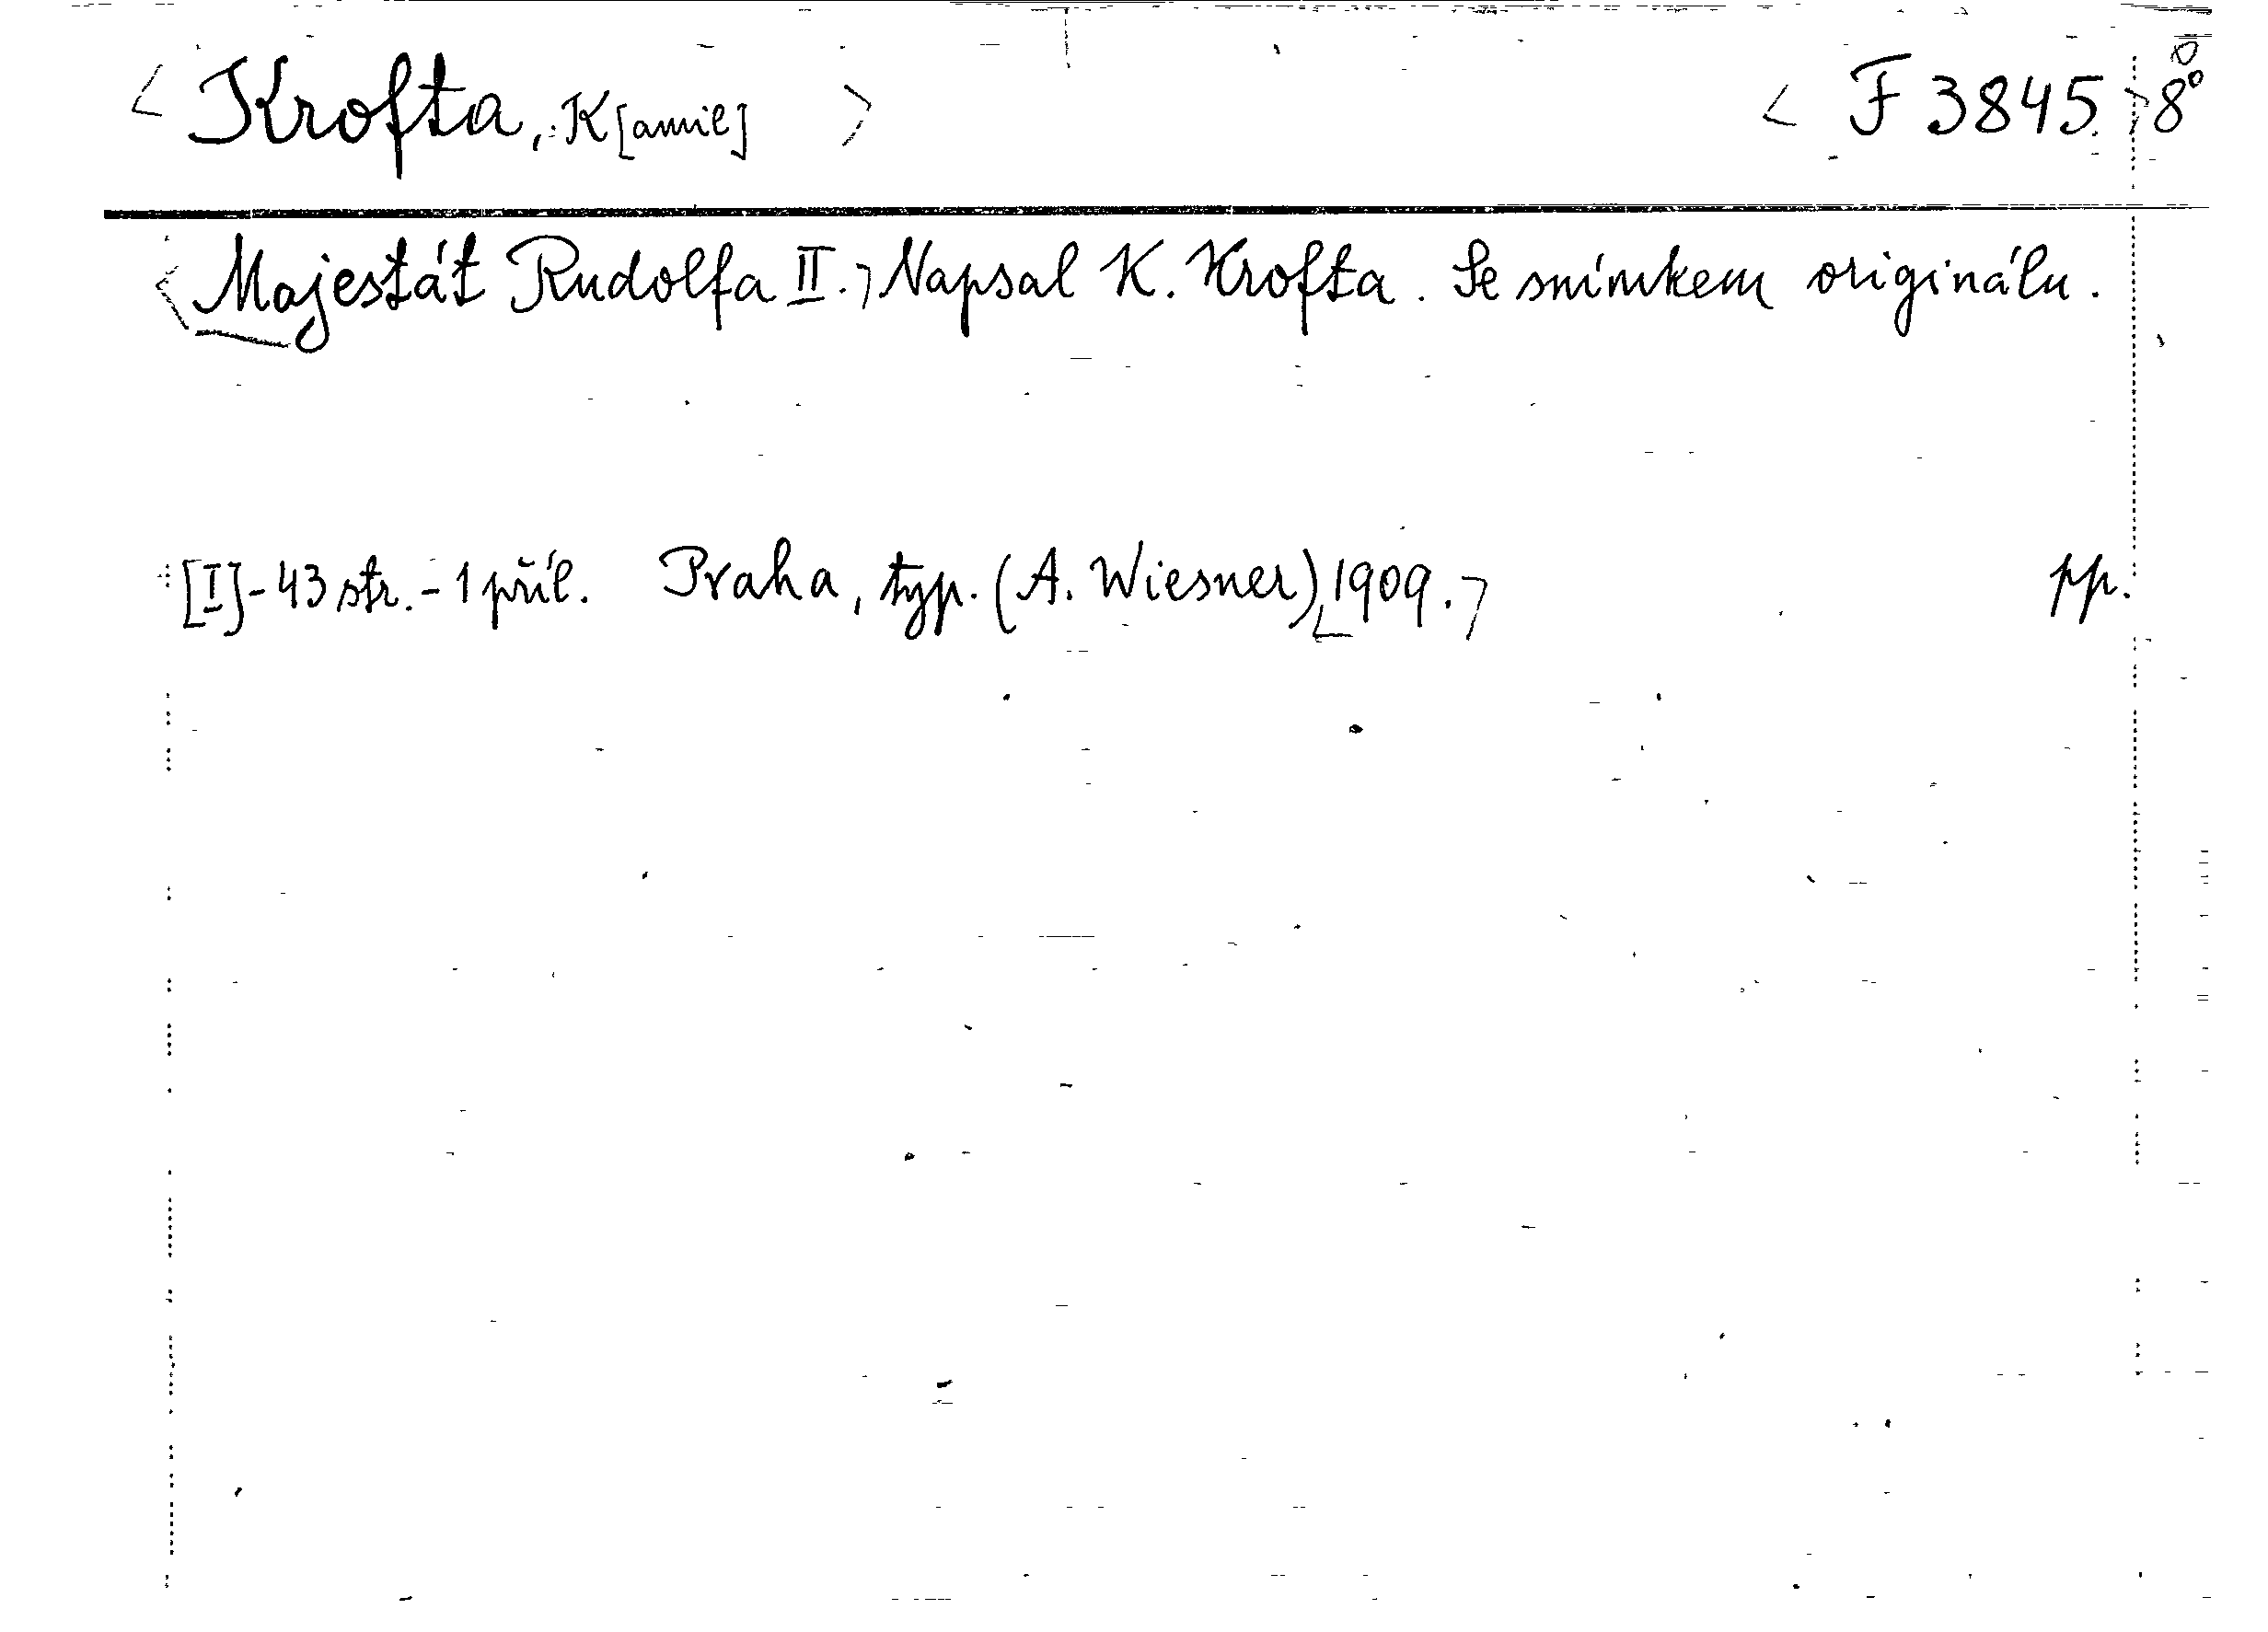 < Krofta, K[amil] > < F 3845. > 8°
<Majestát Rudolfa II.> Napsal K. Krofta. Se snímkem originálu.
[I]-43 str. - 1 příl. Praha, typ. (A. Wiesner) <1909.> pp.